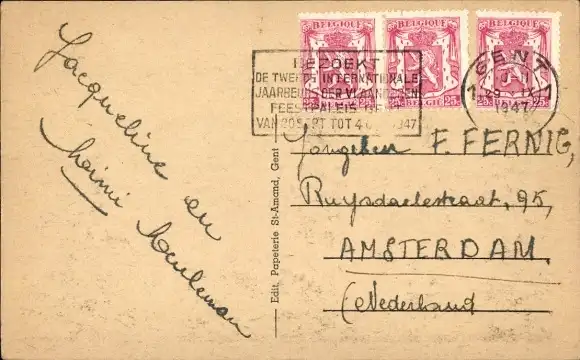 BELGIQUE BELGIQUE BELGIQUE
BELGIË 25c BELGIË 25c 25c
BEZOEKT
DE TWEEDE INTERNATIONALE
JAARBEURS DER VLAANDEREN
FEESTPALEIS GENT
VAN 20 SEPT TOT 1947
GENT
1 1
IX
1947
Jongeheer F. FERNIG,
Ruysdaelestraat, 95,
AMSTERDAM.
(Nederland
Edit. Papeterie St-Amand, Gent
Jacqueline en
Mimi Meuleman